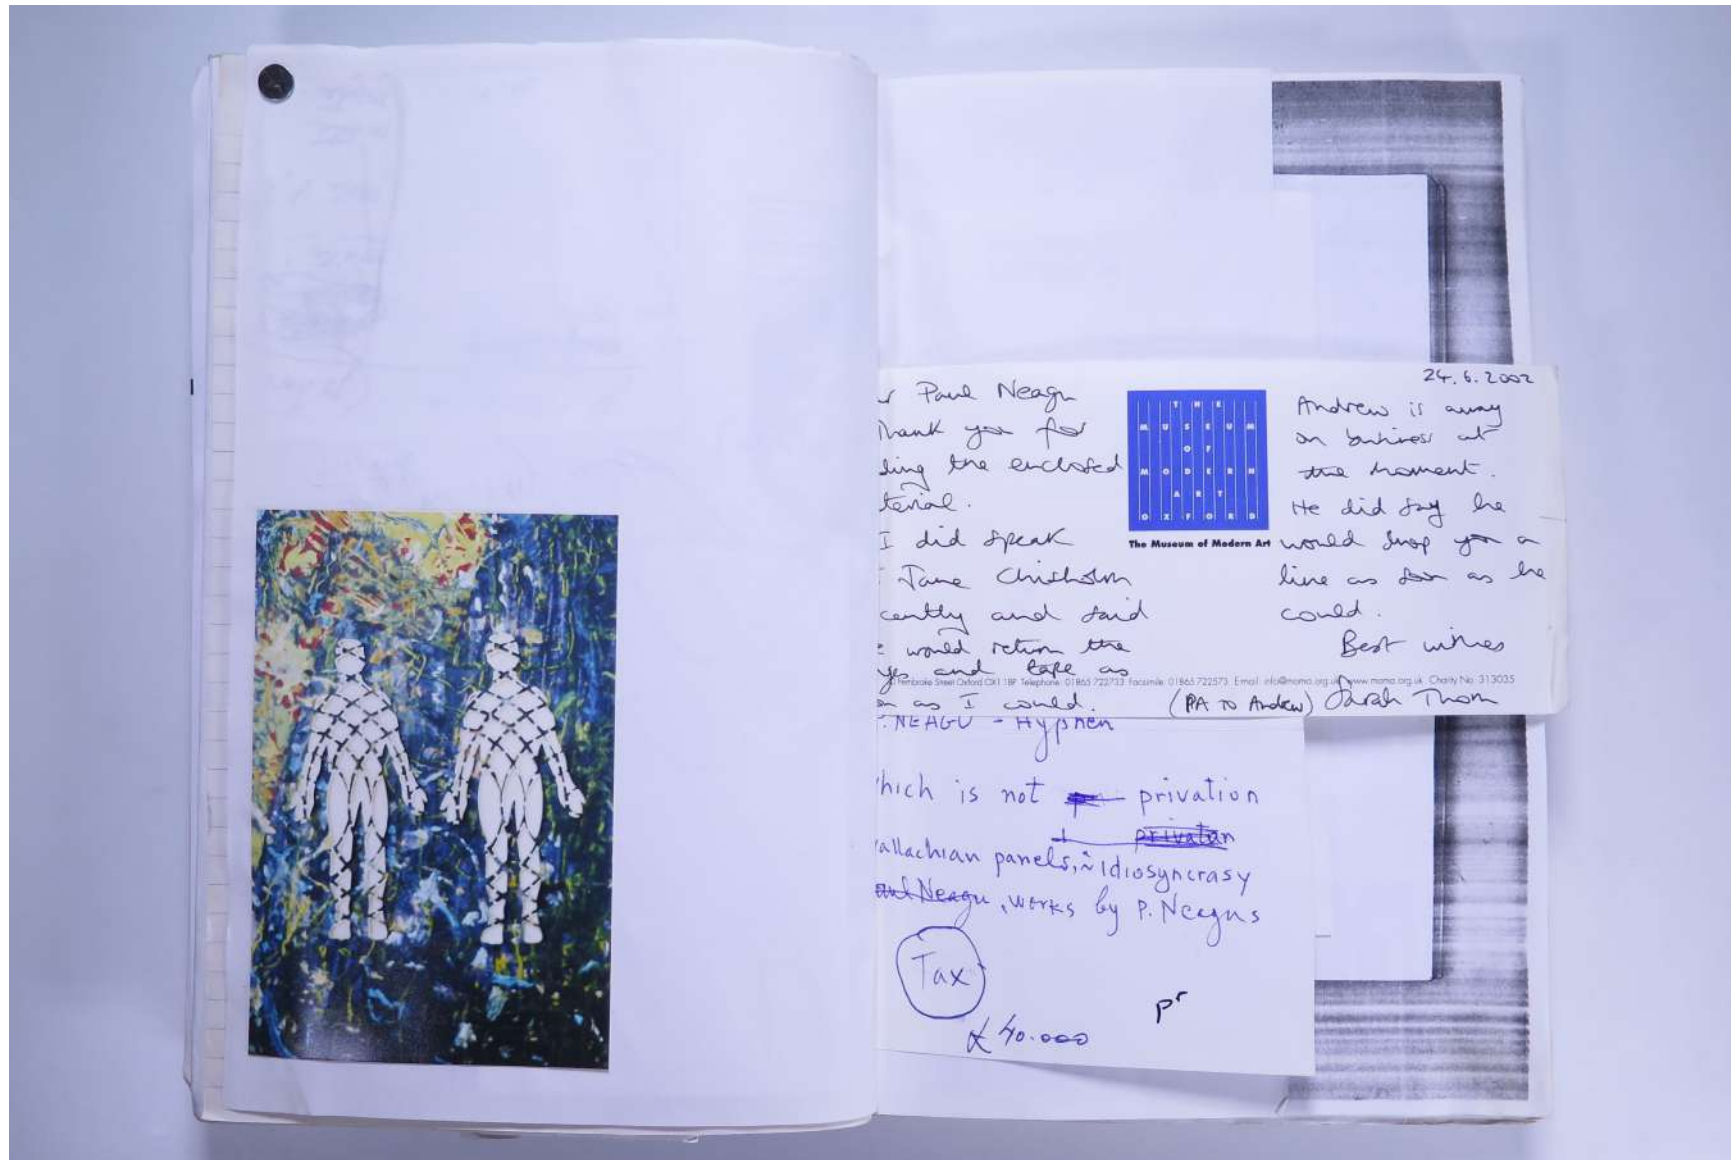 24.6.2002
r Paul Neagu
Thank you for
ding the enclosed
terial.
I did speak
Jane Chisholm
cently and said
would return the
ges and tape as
n as I could.
THE
MUSEUM
OF
MODERN
ART
OXFORD
The Museum of Modern Art
Andrew is away
on business at
the moment.
He did say he
would drop you a
line as soon as he
could.
Best wishes
Sarah Thom
(PA to Andrew)
Pembroke Street Oxford OX1 1BP Telephone: 01865 722733 Facsimile: 01865 722573 Email: info@moma.org.uk www.moma.org.uk Charity No. 313035
P.NEAGU - Hyphen
hich is not privation
privation
allachian panels, Idiosyncrasy
aul Neagu, works by P. Neagus
Tax
pr
£ 40.000